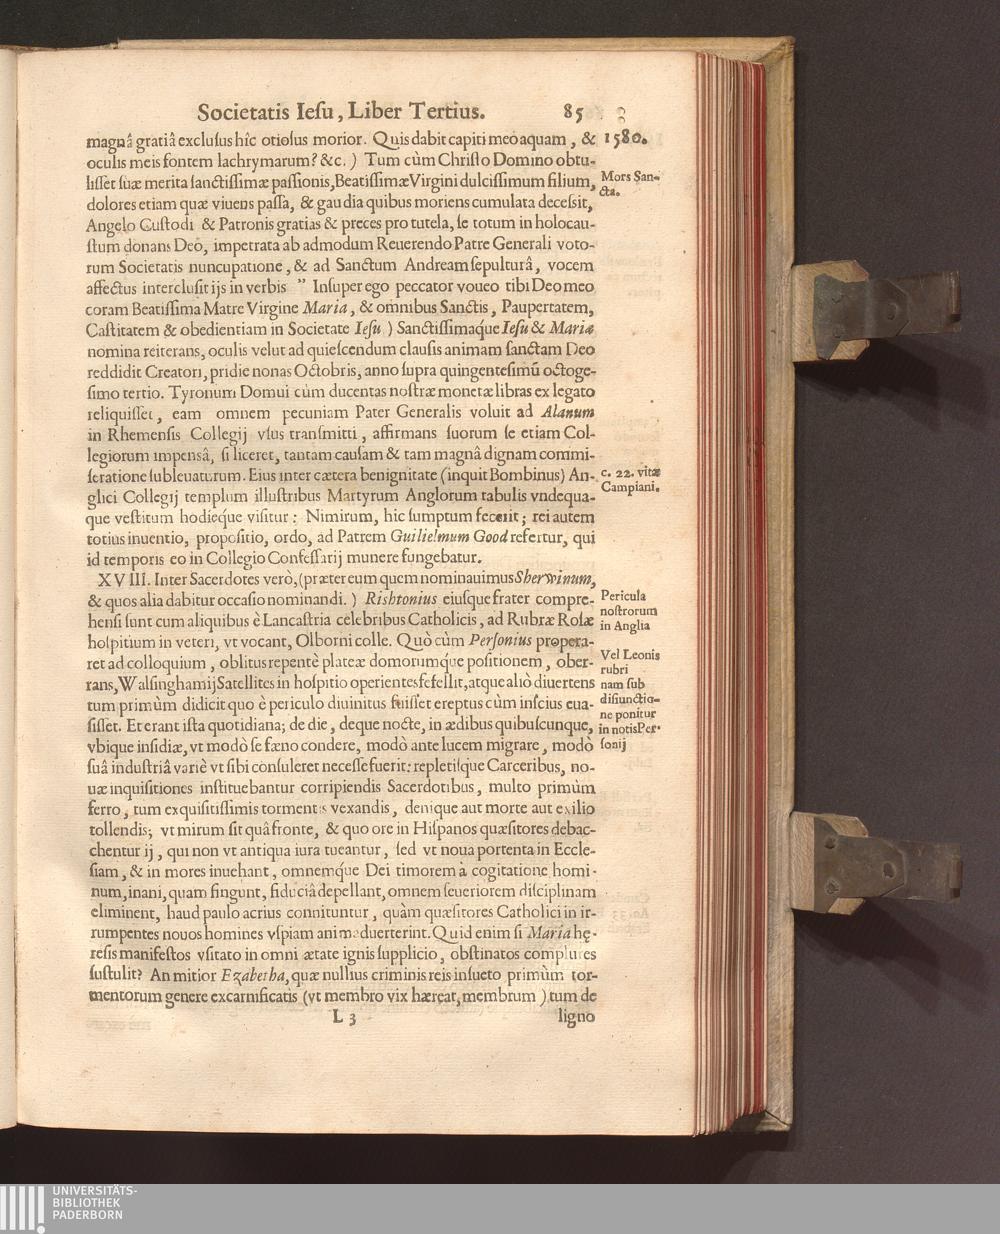 Societatis Iesu, Liber Tertius. 85
magnâ gratiâ exclusus hîc otiosus morior. Quis dabit capiti meo aquam, &
1580.
oculis meis fontem lachrymarum? &c. ) Tum cùm Christo Domino obtu-
lisset suæ merita sanctissimæ passionis, Beatissimæ Virgini dulcissimum filium,
Mors San-
cta.
dolores etiam quæ viuens passa, & gaudia quibus moriens cumulata decessit,
Angelo Custodi & Patronis gratias & preces pro tutela, se totum in holocau-
stum donans Deo, impetrata ab admodum Reuerendo Patre Generali voto-
rum Societatis nuncupatione, & ad Sanctum Andream sepulturâ, vocem
affectus interclusit ijs in verbis " Insuper ego peccator voueo tibi Deo meo
coram Beatissima Matre Virgine Maria, & omnibus Sanctis, Paupertatem,
Castitatem & obedientiam in Societate Iesu ) Sanctissimaq́ue Iesu & Mariæ
nomina reiterans, oculis velut ad quiescendum clausis animam sanctam Deo
reddidit Creatori, pridie nonas Octobris, anno supra quingentesimũ octoge-
simo tertio. Tyronum Domui cùm ducentas nostræ monetæ libras ex legato
reliquisset, eam omnem pecuniam Pater Generalis voluit ad Alanum
in Rhemensis Collegij vsus transmitti, affirmans suorum se etiam Col-
legiorum impensâ, si liceret, tantam causam & tam magnâ dignam commi-
seratione subleuaturum. Eius inter cætera benignitate (inquit Bombinus) An-
c. 22. vitæ
Campiani.
glici Collegij templum illustribus Martyrum Anglorum tabulis vndequa-
que vestitum hodieq́ue visitur: Nimirum, hic sumptum fecerit; rei autem
totius inuentio, propositio, ordo, ad Patrem Guilielmum Good refertur, qui
id temporis eo in Collegio Confessarij munere fungebatur.
XVIII. Inter Sacerdotes verò, (præter eum quem nominauimus Sherwinum,
& quos alia dabitur occasio nominandi. ) Rishtonius eiusque frater compre-
Pericula
nostrorum
in Anglia
hensi sunt cum aliquibus è Lancastria celebribus Catholicis, ad Rubræ Rosæ
hospitium in veteri, vt vocant, Olborni colle. Quò cùm Personius propera-
ret ad colloquium, oblitus repentè plateæ domorumq́ue positionem, ober-
Vel Leonis
rubri
nam sub
disiunctio-
ne ponitur
in notis Per-
sonij
rans, Walsinghamij Satellites in hospitio operientes fefellit, atque aliò diuertens
tum primùm didicit quo è periculo diuinitus fuisset ereptus cùm inscius eua-
sisset. Et erant ista quotidiana; de die, deque nocte, in ædibus quibuscunque,
vbique insidiæ, vt modò se fæno condere, modò ante lucem migrare, modò
suâ industriâ variè vt sibi consuleret necesse fuerit: repletisque Carceribus, no-
uæ inquisitiones instituebantur corripiendis Sacerdotibus, multo primùm
ferro, tum exquisitissimis tormentis vexandis, denique aut morte aut exilio
tollendis; vt mirum sit quâ fronte, & quo ore in Hispanos quæsitores debac-
chentur ij, qui non vt antiqua iura tueantur, sed vt noua portenta in Eccle-
siam, & in mores inuehant, omnemq́ue Dei timorem à cogitatione homi-
num, inani, quam fingunt, fiduciâ depellant, omnem seueriorem disciplinam
eliminent, haud paulo acrius connituntur, quàm quæsitores Catholici in ir-
rumpentes nouos homines vspiam animaduerterint. Quid enim si Maria hę-
resis manifestos vsitato in omni ætate ignis supplicio, obstinatos complures
sustulit? An mitior Ezabetha, quæ nullius criminis reis insueto primùm tor-
mentorum genere excarnificatis (vt membro vix hæreat, membrum ) tum de
L 3 ligno
UNIVERSITÄTS-
BIBLIOTHEK
PADERBORN